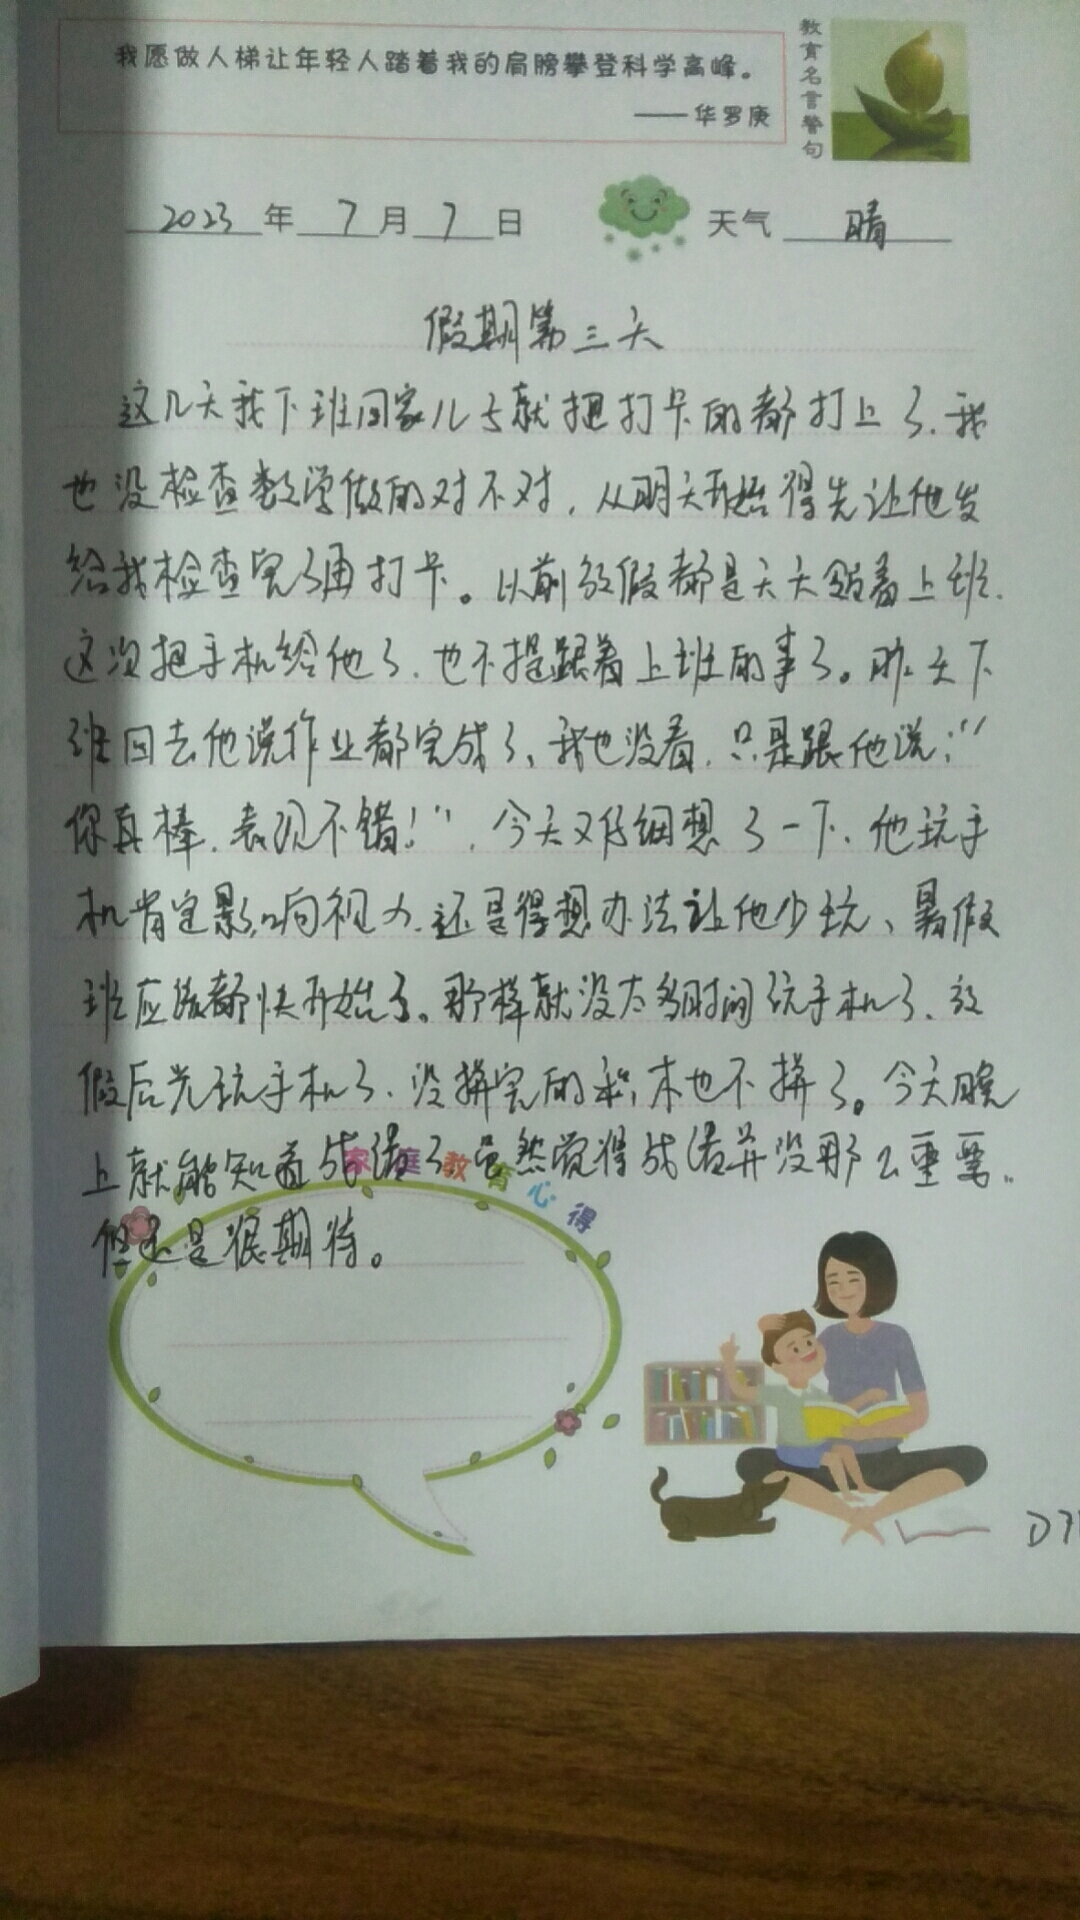 我愿做人梯让年轻人踏着我的肩膀攀登科学高峰。
——华罗庚
教育名言警句
2023年7月7日 天气 晴
假期第三天
这几天我下班回家儿子就把打卡的都打上了，我
也没检查数学做的对不对，从明天开始得先让他发
给我检查完了再打卡。以前放假都是天天跟着上班，
这次把手机给他了，也不提跟着上班的事了。昨天下
班回去他说作业都完成了，我也没看，只是跟他说：“
你真棒，表现不错！”，今天又仔细想了一下，他玩手
机肯定影响视力，还是得想办法让他少玩、暑假
班应该都快开始了。那样就没太多时间玩手机了、放
假后光玩手机了、没拼完的积木也不拼了。今天晚
上就能知道成绩了，虽然觉得成绩并没那么重要。
但还是很期待。
家庭教育心得